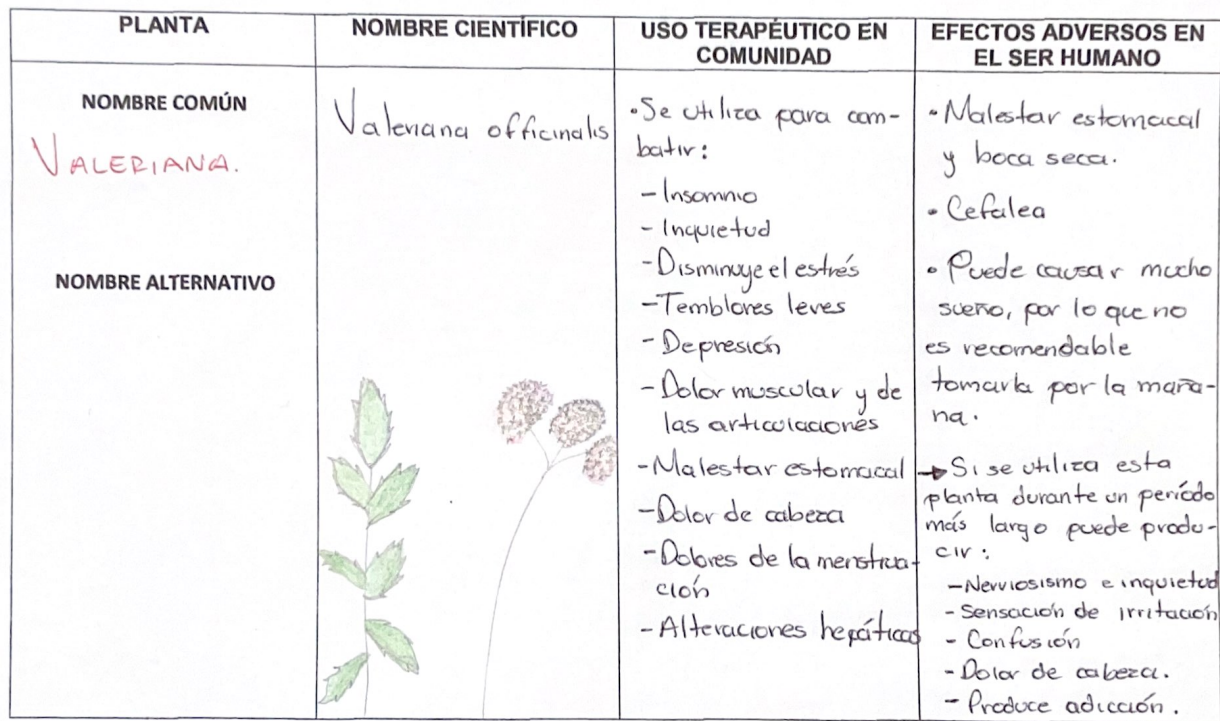 PLANTA
NOMBRE CIENTÍFICO
USO TERAPÉUTICO EN
COMUNIDAD
EFECTOS ADVERSOS EN
EL SER HUMANO
NOMBRE COMÚN
VALERIANA.
NOMBRE ALTERNATIVO
Valeriana officinalis
•Se utiliza para com-
batir:
-Insomnio
-Inquietud
-Disminuye el estrés
-Temblores leves
-Depresión
-Dolor muscular y de
las articulaciones
-Malestar estomacal
-Dolor de cabeza
-Dolores de la menstrua-
ción
-Alteraciones hepáticas
•Malestar estomacal
y boca seca.
•Cefalea
•Puede causar mucho
sueño, por lo que no
es recomendable
tomarla por la maña-
na.
→Si se utiliza esta
planta durante un período
más largo puede produ-
cir:
-Nerviosismo e inquietud
-Sensación de irritación
-Confusión
-Dolor de cabeza.
-Produce adicción.